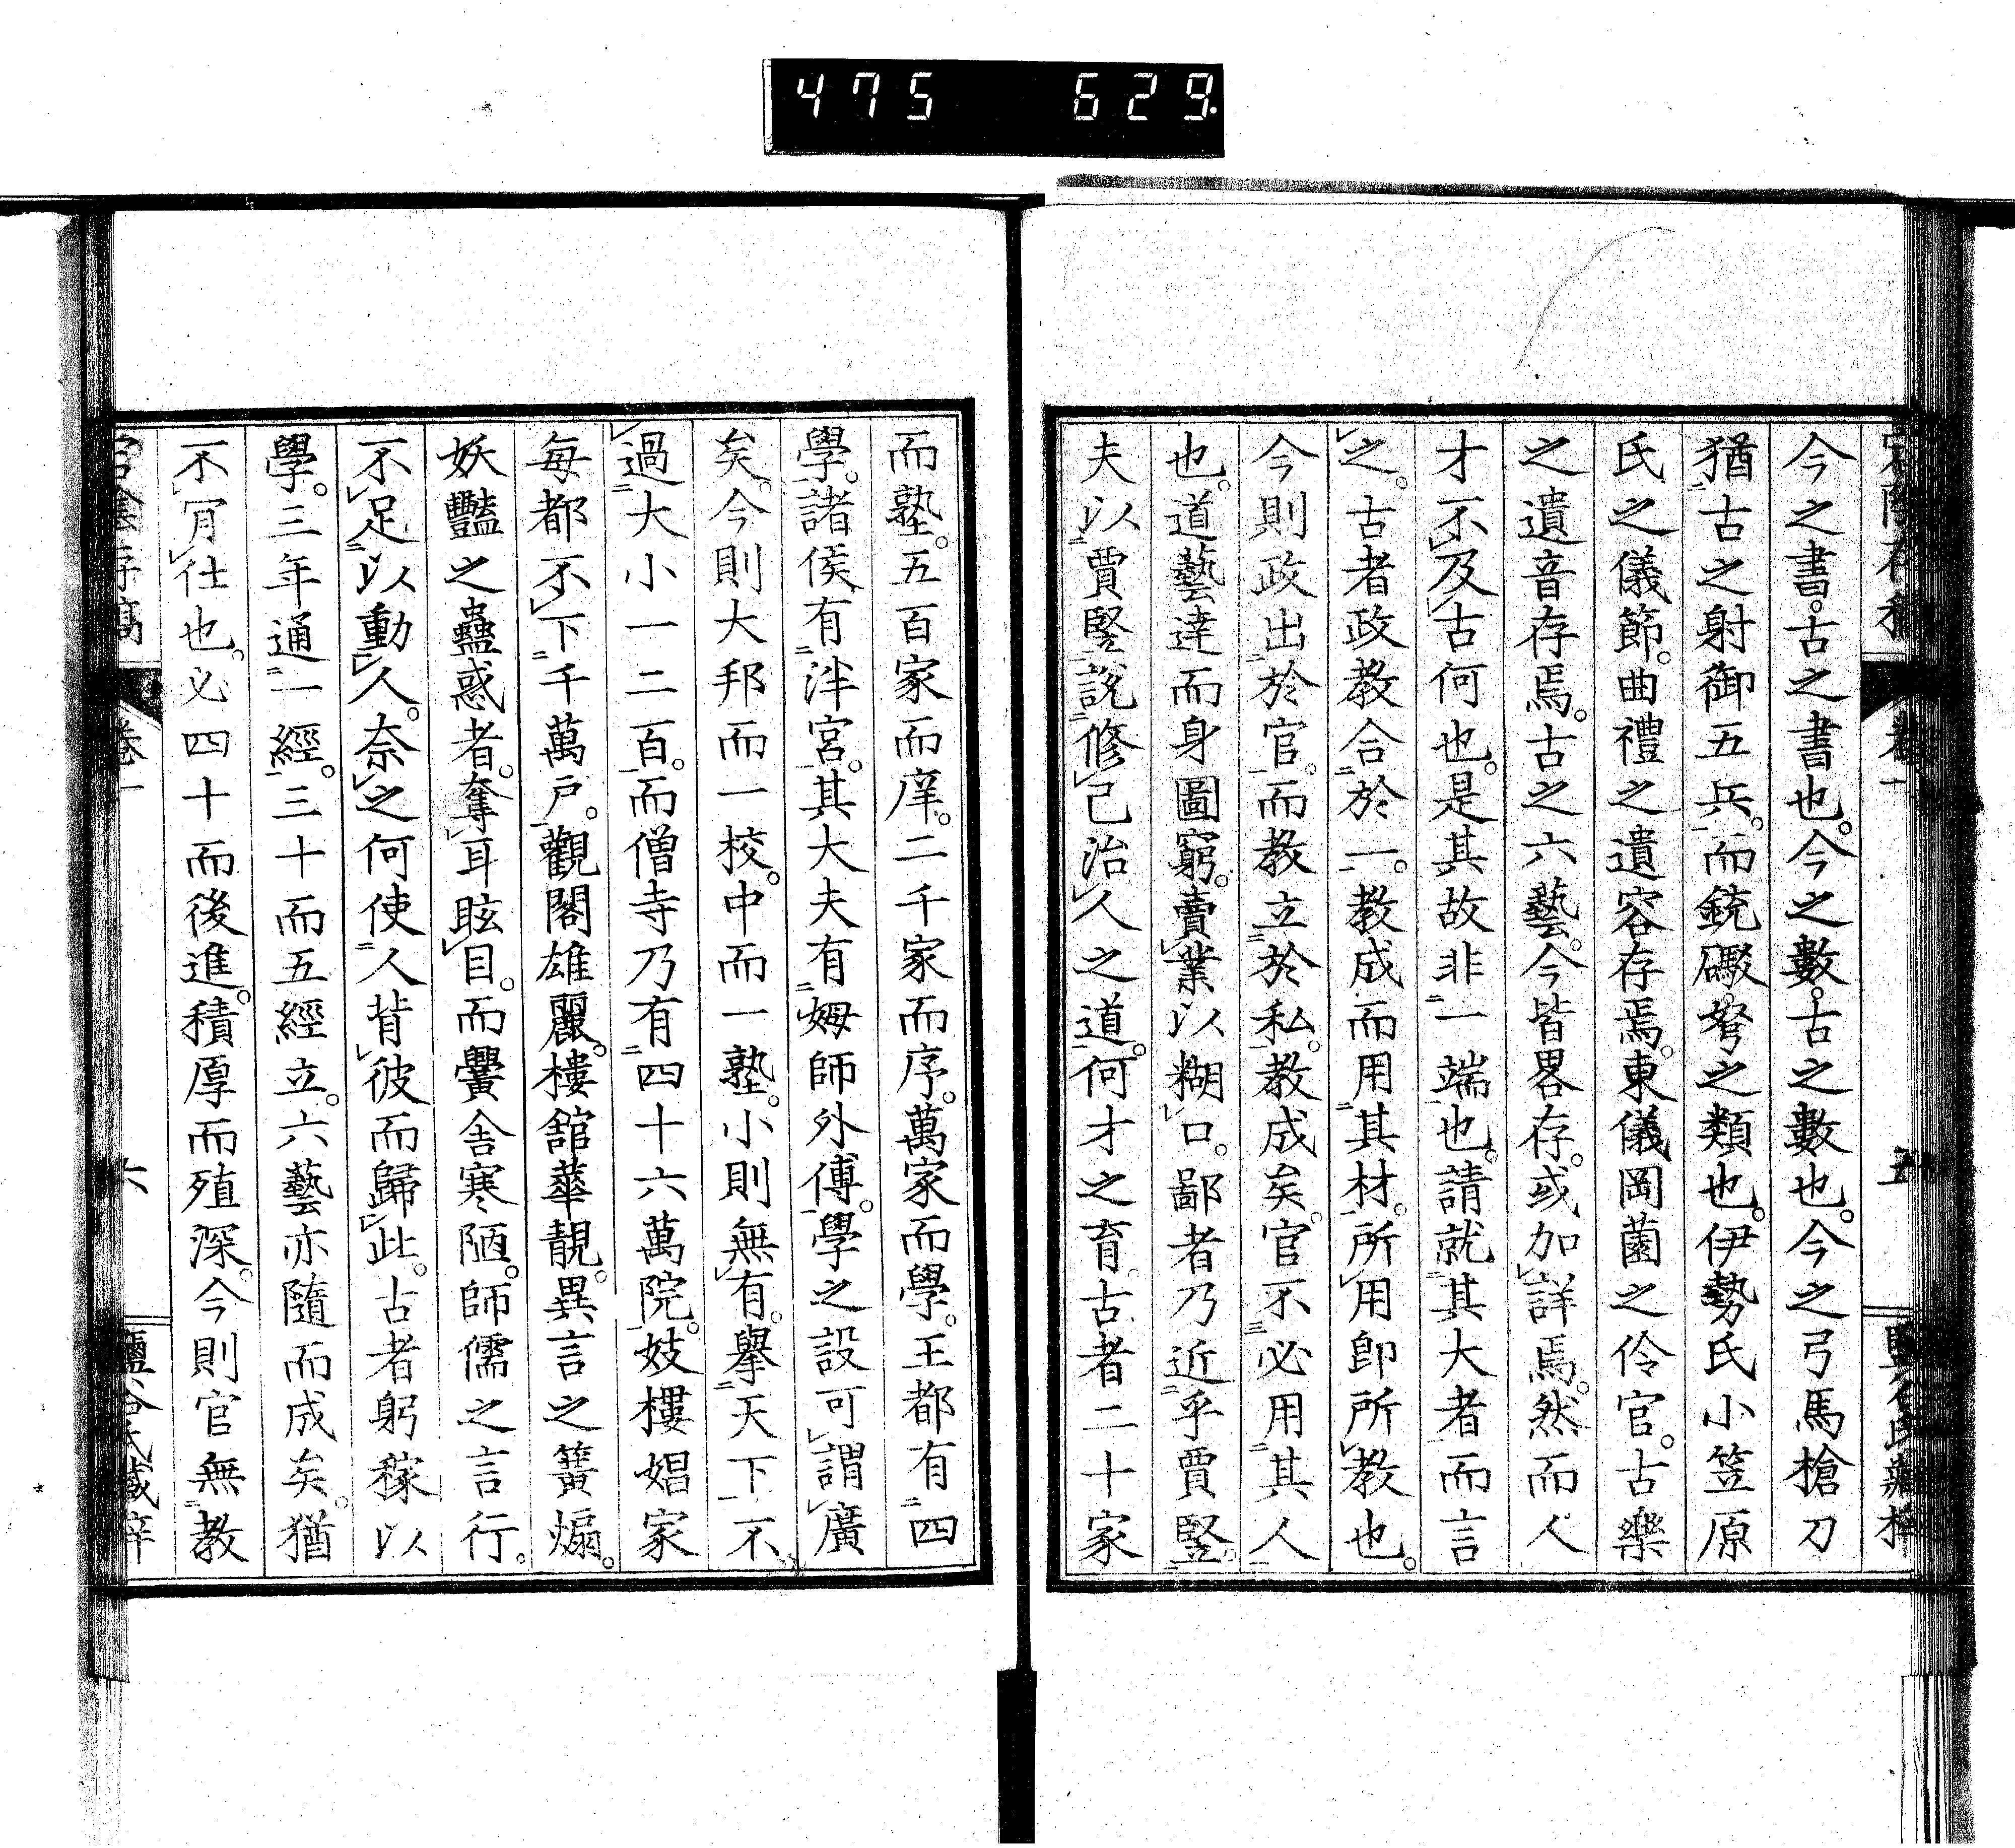 475 629
今之書。古之書也。今之數。古之數也。今之弓馬槍刀
猶古之射御五兵。而銃礮。弩之類也。伊勢氏小笠原
氏之儀節。曲禮之遺容存焉。東儀岡薗之伶官。古樂
之遺音存焉。古之六藝。今皆畧存。或加詳焉。然而人
才不及古何也。是其故非一端也。請就其大者而言
之。古者政教合於一。教成而用其材。所用卽所教也。
今則政出於官。而教立於私。教成矣。官不必用其人
也。道藝達而身圖窮。賣業以糊口。鄙者乃近乎賈豎。
夫以賈豎說修己治人之道。何才之育。古者二十家
而塾。五百家而庠。二千家而序。萬家而學。王都有四
學。諸侯有泮宮。其大夫有姆師外傅。學之設可謂廣
矣。今則大邦而一校。中而一塾。小則無有。擧天下不
過大小一二百。而僧寺乃有四十六萬院。妓樓娼家
每都不下千萬戶。觀閣雄麗。樓舘華靚。異言之簧煽。
妖豔之蠱惑者。奪耳眩目。而黌舍寒陋。師儒之言行。
不足以動人。奈之何使人背彼而歸此。古者躬稼以
學。三年通一經。三十而五經立。六藝亦隨而成矣。猶
不肎仕也。必四十而後進。積厚而殖深。今則官無教
卷一
六